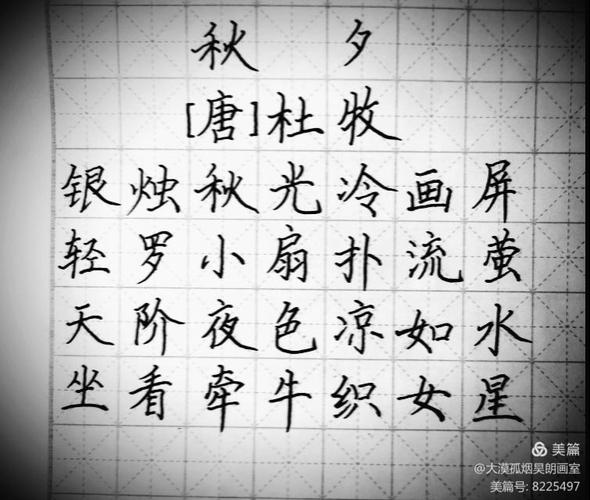 秋夕
[唐]杜牧
银烛秋光冷画屏
轻罗小扇扑流萤
天阶夜色凉如水
坐看牵牛织女星
美篇
@大漠孤烟昊朗画室
美篇号: 8225497